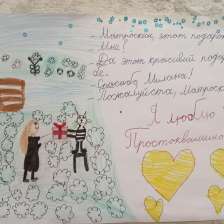 - Матроскин, этот подарок
мне!
- Да этот красивый подарок
- Спасибо Милана!
- Пожалуйста, Матроск
Я люблю
Простоквашино